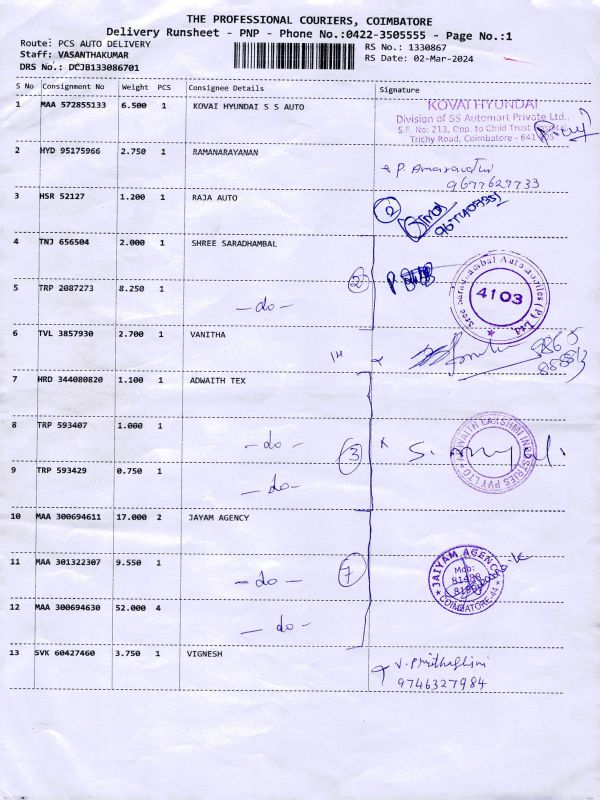 THE PROFESSIONAL COURIERS, COIMBATORE
Delivery Runsheet - PNP - Phone No.:0422-3505555 - Page No.:1
Route: PCS AUTO DELIVERY
RS No.: 1330867
Staff: VASANTHAKUMAR
RS Date: 02-Mar-2024
DRS No.: DCJB133086701
S No Consignment No Weight PCS Consignee Details Signature
1 MAA 572855133 6.500 1 KOVAI HYUNDAI S S AUTO
KOVAI HYUNDAI
Division of SS Automart Private Ltd.,
S.F. No: 213, Opp. to Child Trust
Trichy Road, Coimbatore - 641
2 HYD 95175966 2.750 1 RAMANARAYANAN
9677627733
3 HSR 52127 1.200 1 RAJA AUTO
2
4 TNJ 656504 2.000 1 SHREE SARADHAMBAL
2
4103
5 TRP 2087273 8.250 1
- do -
6 TVL 3857930 2.700 1 VANITHA
7 HRD 344080820 1.100 1 ADWAITH TEX
8 TRP 593407 1.000 1
- do -
3
ADWAITH LAKSHMI INDUSTRIES PVT LTD
9 TRP 593429 0.750 1
- do -
10 MAA 300694611 17.000 2 JAYAM AGENCY
11 MAA 301322307 9.550 1
- do -
7
JAIYAM AGENCY
Mob:
COIMBATORE-44
12 MAA 300694630 52.000 4
- do -
13 SVK 60427460 3.750 1 VIGNESH
9746327984